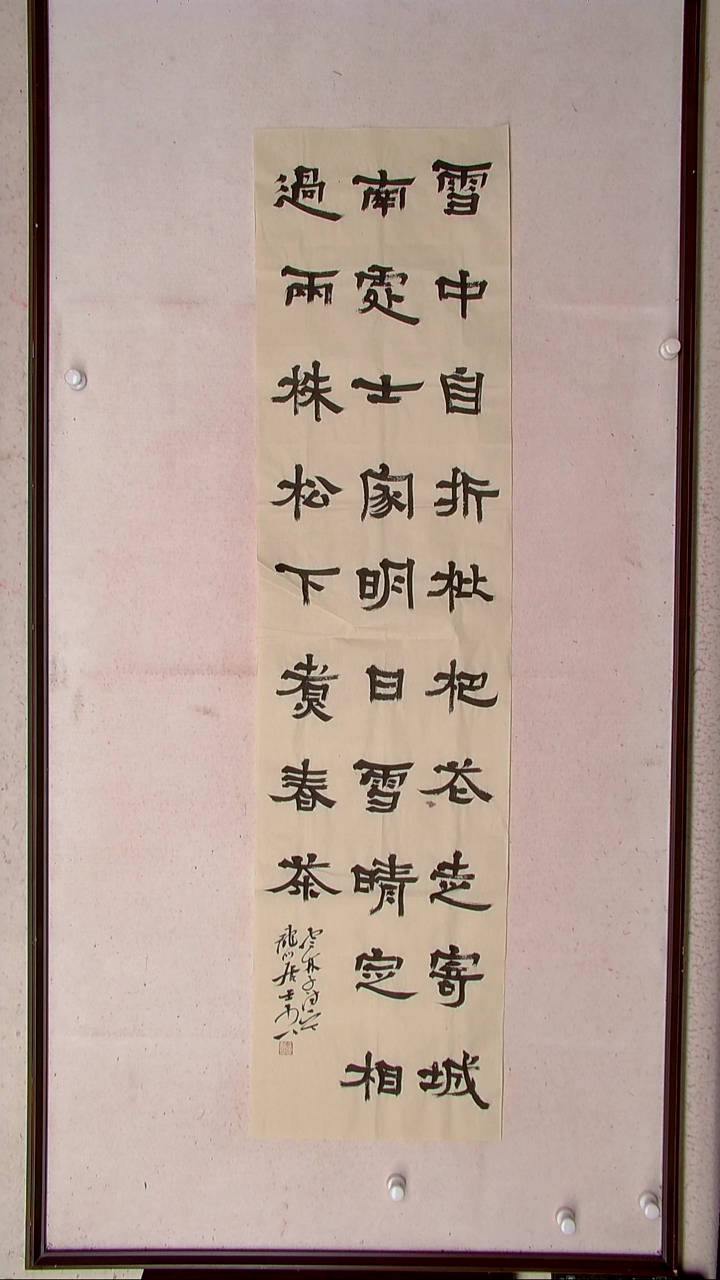 雪中自折枇杷花走寄城
南處士家明日雪晴定相
過兩株松下煮春茶